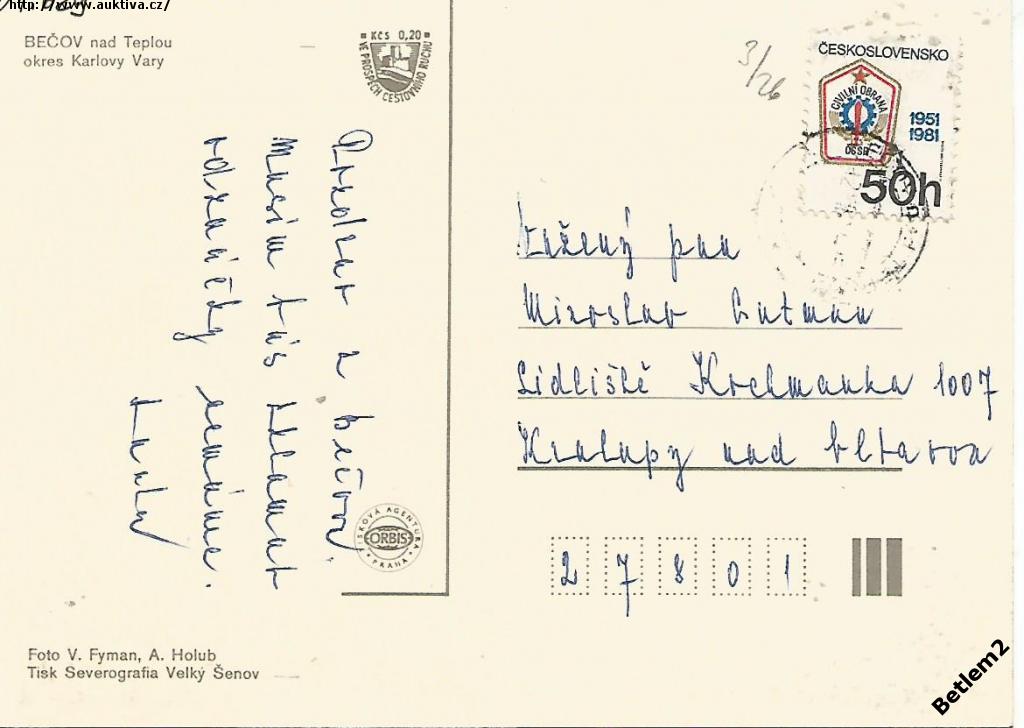 http://www.auktiva.cz/
BEČOV nad Teplou
okres Karlovy Vary
Kčs 0,20
VE PROSPĚCH CESTOVNÍHO RUCHU
3/26
ČESKOSLOVENSKO
CIVILNÍ OBRANA
ČSSR
1951
1981
50h
Pozdrav z Bečova.
Musím vás zklamat
odznáčky nemáme.
Vážený pan
Miroslav Gutman
Sídliště Hrelmanka 1007
Kralupy nad Vltavou
27801
TISKOVÁ AGENTURA
ORBIS
PRAHA
Foto V. Fyman, A. Holub
Tisk Severografia Velký Šenov
Betlem2